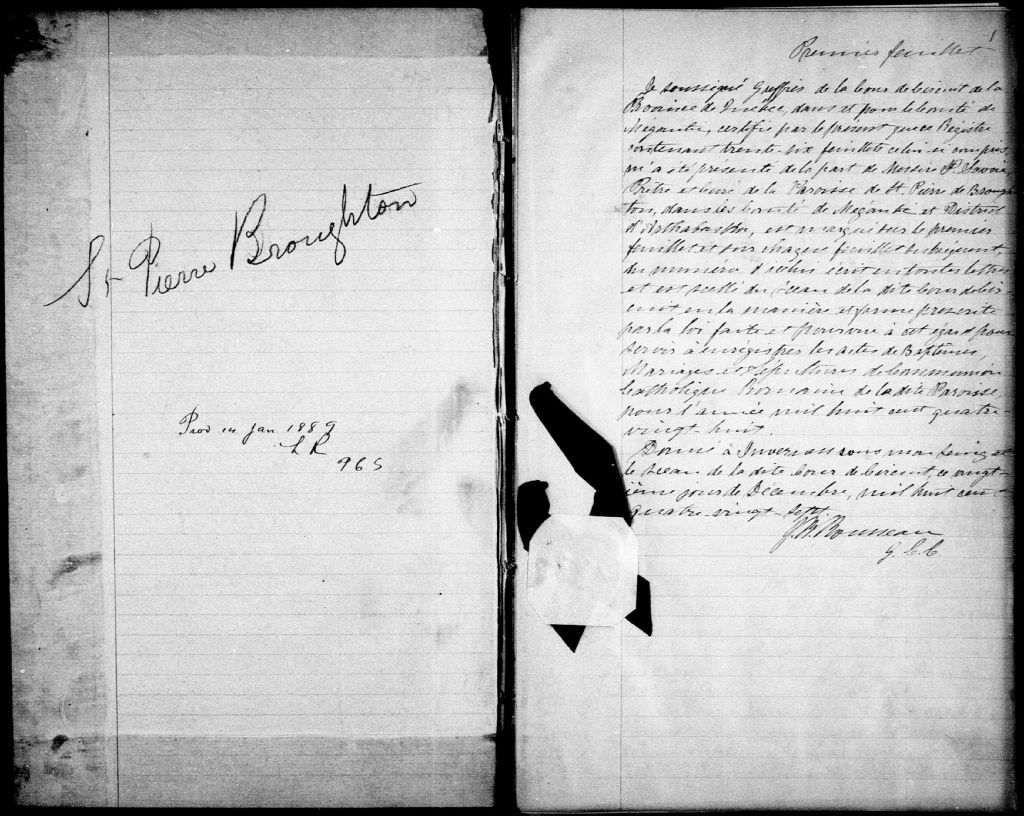 St Pierre Broughton
Prod 14 Jan 1889
LR
965
1
Premier feuillet
Je soussigné Greffier de la Cour de Circuit de la
Province de Quebec, dans et pour le Comté de
Mégantic, certifie par le présent que ce Régistre
contenant trente-six feuillets celui-ci compris
m'a été présenté de la part de Messire P. Savoie,
Prêtre et Curé de la Paroisse de St. Pierre de Brough
ton, dans les Comté de Mégantic et District
d'Arthabaska, est marqué sur le premier
feuillet et sur chaque feuillet subséquent,
du numéro d'icelui écrit en toutes lettres
et est scellé du sceau de la dite Cour de Cir
cuit en la manière et forme prescrite
par la loi faite et pourvue à cet égard pour
servir à enrégistrer les actes de Baptêmes,
Mariages et Sépultures de Communion
Catholique Romaine de la dite Paroisse,
pour l'année mil huit cent quatre
vingt-huit.
Donné à Inverness sous mon seing et
le sceau de la dite Cour de Circuit ce vingt-
ième jour de Décembre, mil huit cent
quatre-vingt sept.
J. B. Rousseau
G. C. C